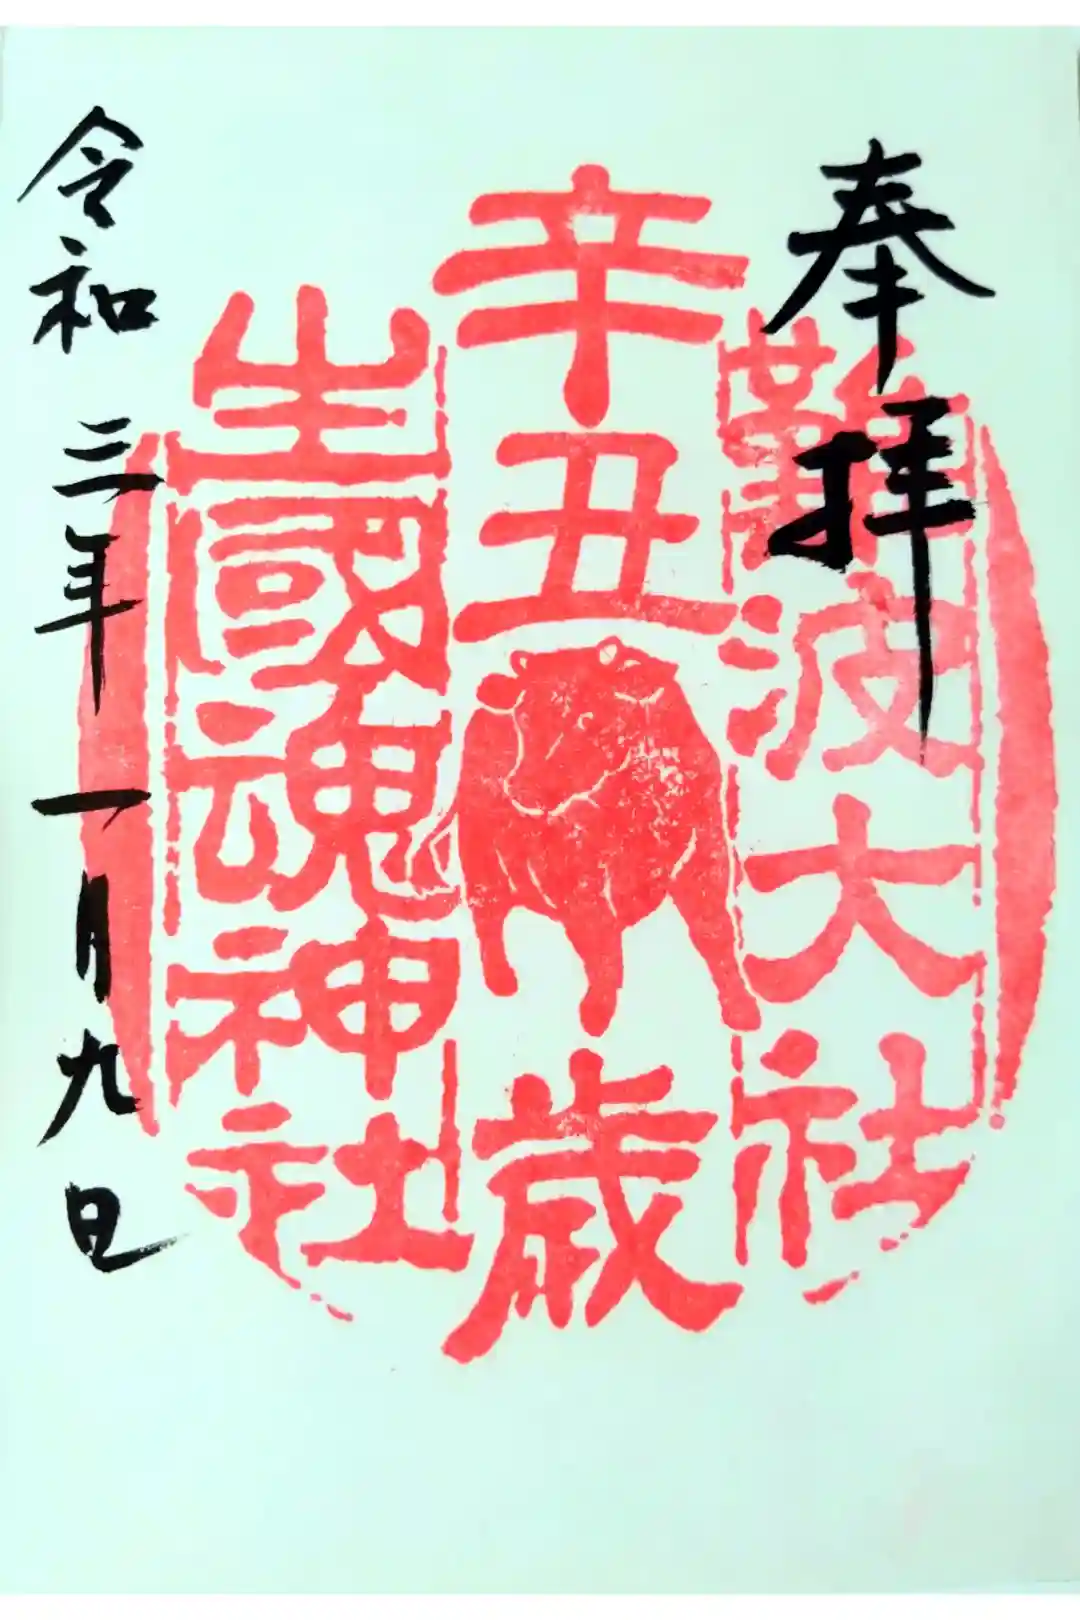 奉拝
難波大社
辛丑歳
生國魂神社
令和三年一月九日